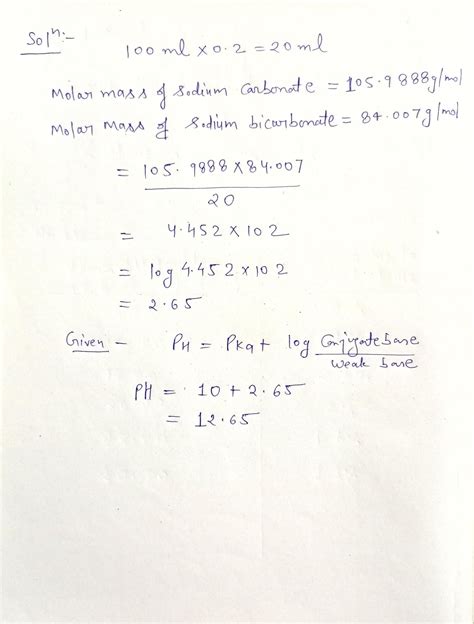 Solⁿ:-
100 ml x 0.2 = 20 ml
Molar mass of Sodium Carbonate = 105.9888g/mol
Molar Mass of Sodium bicarbonate = 84.007g/mol
= 105.9888 x 84.007
20
= 4.452 x 102
= log 4.452 x 102
= 2.65
Given - PH = PKa + log Conjugate base
Weak base
PH = 10 + 2.65
= 12.65